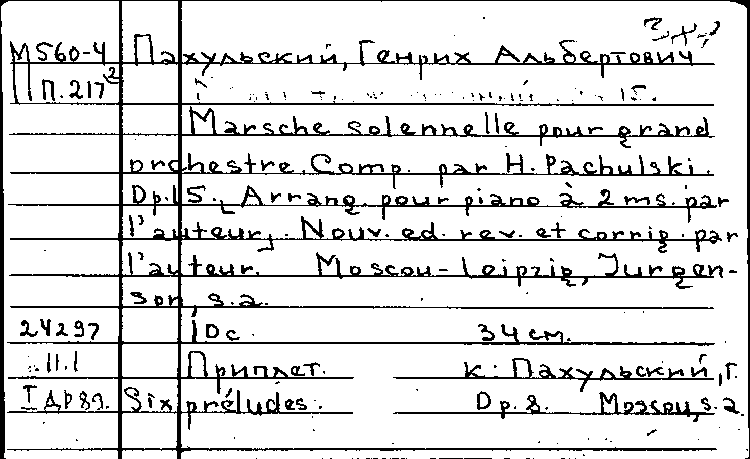 М560-4 Пахульский, Генрих Альбертович
П.217² 15.
Marsche solennelle pour grand
orchestre. Comp. par H. Pachulski.
Op.15. [Arrang. pour piano à 2 ms. par
l'auteur]. Nouv. ed. rev. et corrig. par
l'auteur. Moscou-Leipzig, Jurgen-
son, s.a.
24297 10с. 34 см.
II.1 Приплет. к: Пахульский, Г.
Six préludes. Op. 8. Moscou, s.a.